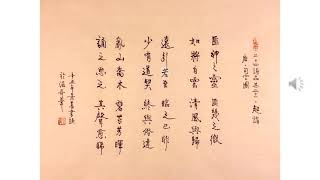 二十四詩品之二十一·超詣
唐·司空圖
匪神之靈 匪幾之微
如將白雲 清風與歸
遠引若至 臨之已非
少有道契 終與俗違
亂山喬木 碧苔芳暉
誦之思之 其聲愈希
於温哥華